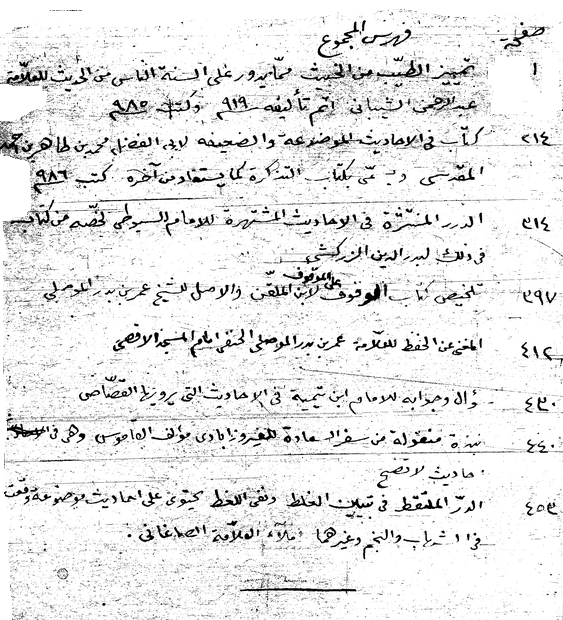 صفحة فهرس المجموع
١ تمييز الطيّب من الخبيث ممّا يدور على السنة الناس من الحديث للعلّامة
عبد الرحمن الشيباني اتم تأليفه ٩١٩ وكتب ٩٨٥
٢١٤ كتاب في الاحاديث الموضوعة والضعيفه لابي الفضل محمد بن طاهر بن احمد
المقدسي ويسمّى بكتاب التذكرة كما يستفاد من آخره كتب ٩٨٦
٣١٤ الدرر المنتثرة في الاحاديث المشتهرة للامام السيوطي لخّصه من كتاب
في ذلك لبدر الدين الزركشي
٣٩٧ تلخيص كتاب الوقوف على الموقوف لابن الملقّن والاصل للشيخ عمر بن بدر الموصلي
٤١٢ المغني عن الحفظ للعلّامة عمر بن بدر الموصلي الحنفي امام المسجد الاقصى
٤٣٠ سؤال وجوابه للامام ابن تيمية في الاحاديث التي يرويها القصّاص
٤٤٠ نبذة منقولة من سفر السعادة للفيروزابادى مؤلف القاموس وهى في
احاديث لا تصح
٤٥٣ الدرّ الملتقط في تبيين الغلط ونفي اللغط يحتوى على احاديث موضوعة وقعت
في الشهاب والنجم وغيرهما املاء العلّامة الصاغاني .